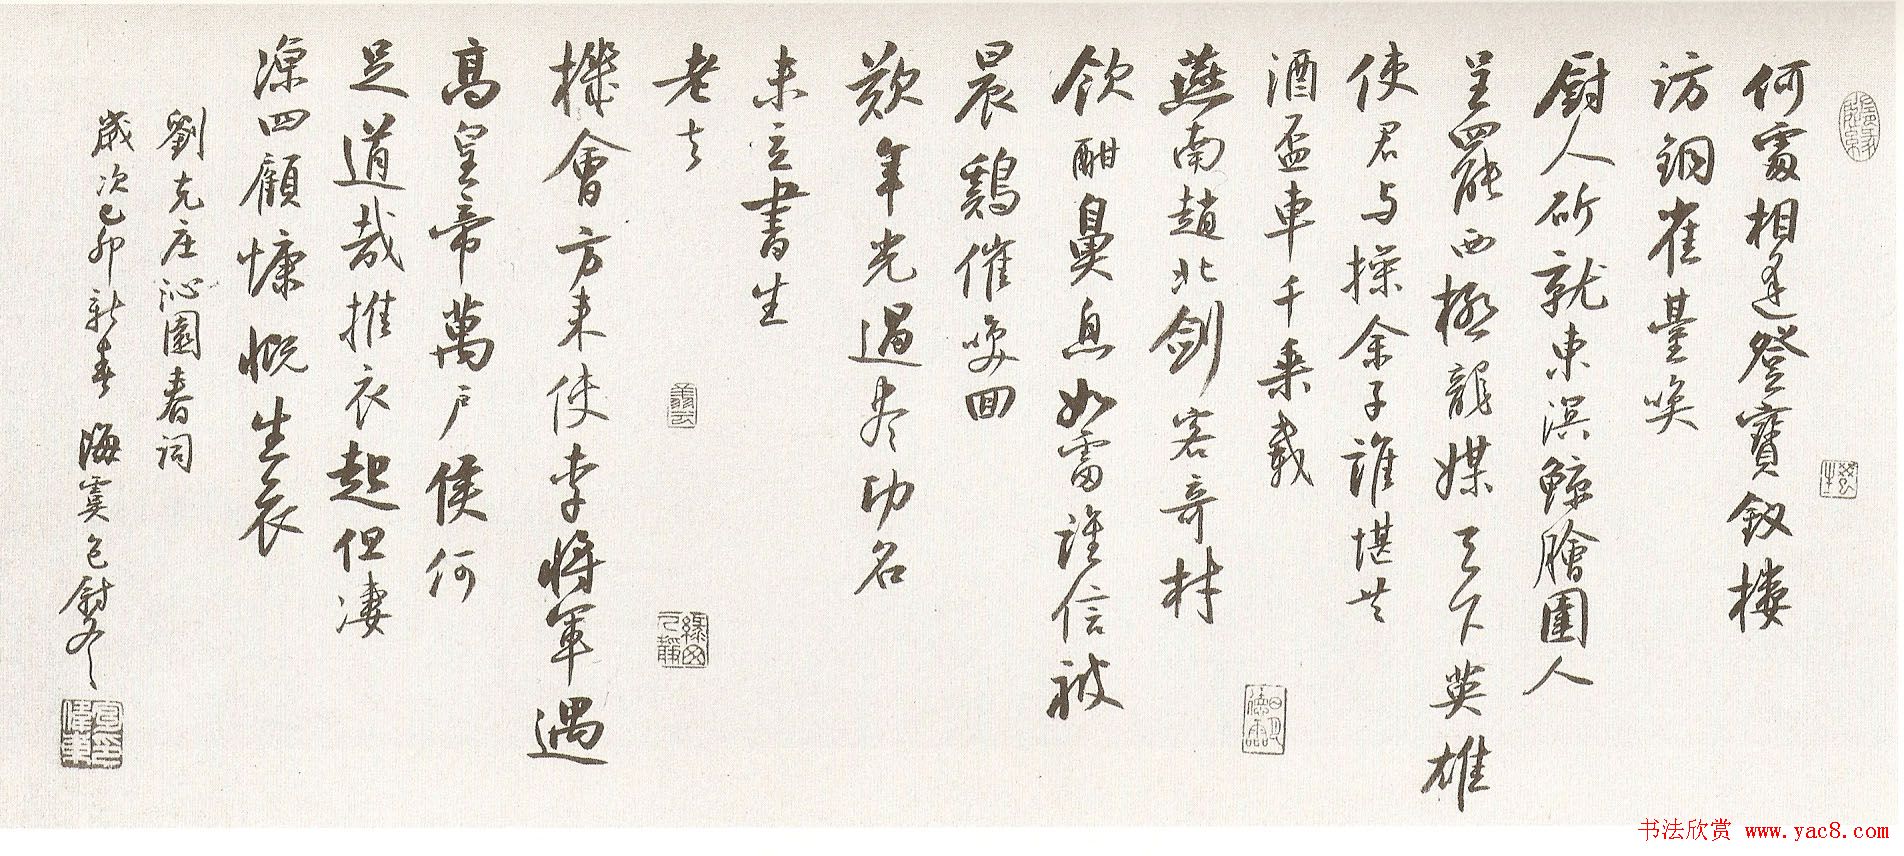 何處相逢登寶釵樓
访銅雀臺唤
厨人斫就東溟鲸膾圉人
呈罷西極龍媒天下英雄
使君与操余子誰堪共
酒盃車千乗載
燕南趙北劍客奇材
飲酣鼻息如雷誰信被
晨鷄催唤回
歎年光過尽功名
未立書生
老去
機會方来使李將軍遇
高皇帝萬户侯何
足道哉推衣起但凄
凉四顧慷慨生哀
劉克庄沁園春词
歲次己卯新春海虞包厨冬
书法欣赏 www.yac8.com